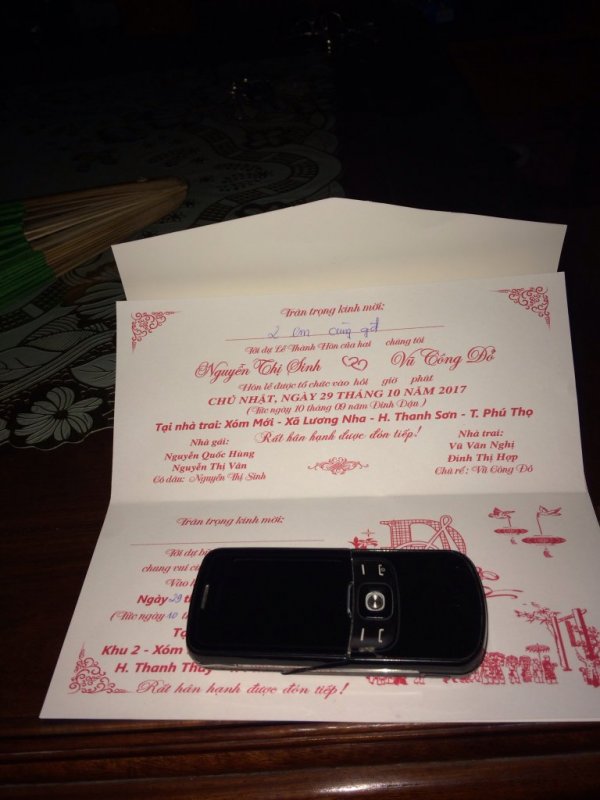 Trân trọng kính mời:
2 em cùng gđ
Tới dự Lễ Thành Hôn của hai chúng tôi
Nguyễn Thị Sinh Vũ Công Đỏ
Hôn lễ được tổ chức vào hồi giờ phút
CHỦ NHẬT, NGÀY 29 THÁNG 10 NĂM 2017
(Tức ngày 10 tháng 09 năm Đinh Dậu)
Tại nhà trai: Xóm Mới - Xã Lương Nha - H. Thanh Sơn - T. Phú Thọ
Rất hân hạnh được đón tiếp!
Nhà gái:
Nguyễn Quốc Hùng
Nguyễn Thị Vân
Cô dâu: Nguyễn Thị Sinh
Nhà trai:
Vũ Văn Nghị
Đinh Thị Hợp
Chú rể: Vũ Công Đỏ
Trân trọng kính mời:
Tới dự
chung vui
Vào
Ngày 29
(Tức ngày 10
Khu 2 - Xóm
H. Thanh Thủy
Rất hân hạnh được đón tiếp!